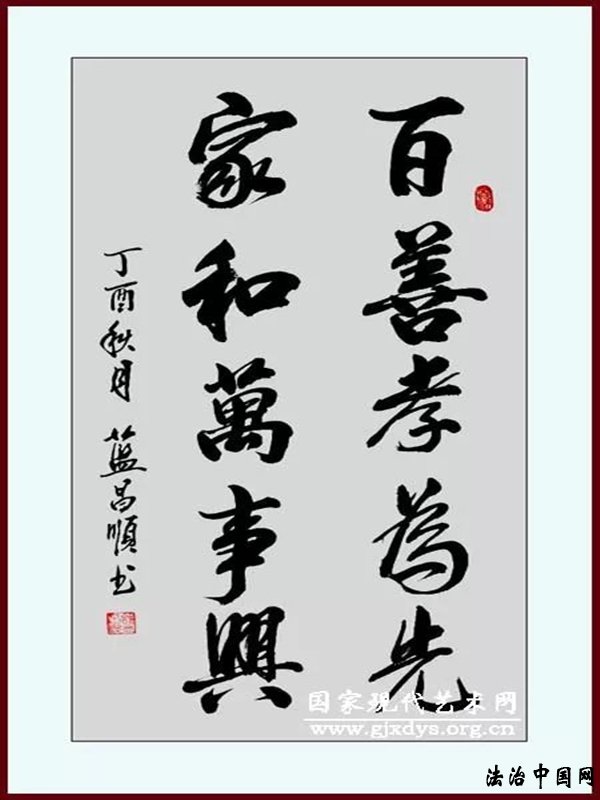 百善孝為先
家和萬事興
丁酉秋月 藍昌順书
国家现代艺术网
www.gjxdys.org.cn
法治中国网